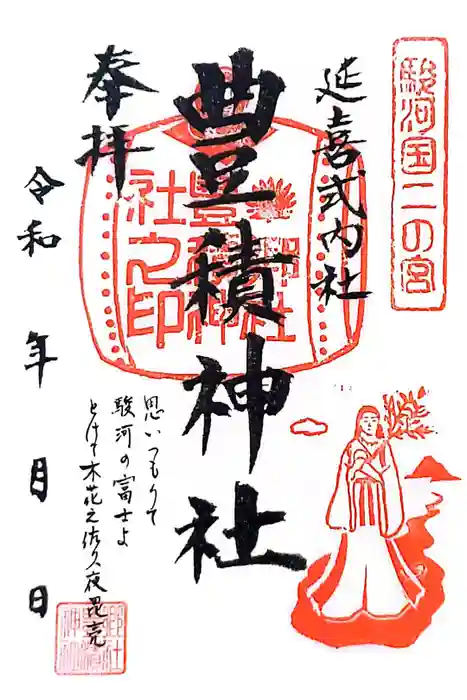 駿河国二の宮
延喜式内社
豊積神社
奉拝
郷社
豊積神
社之印
思いつもりて
駿河の富士よ
とけて木花之佐久夜毘売
令和 年 月 日